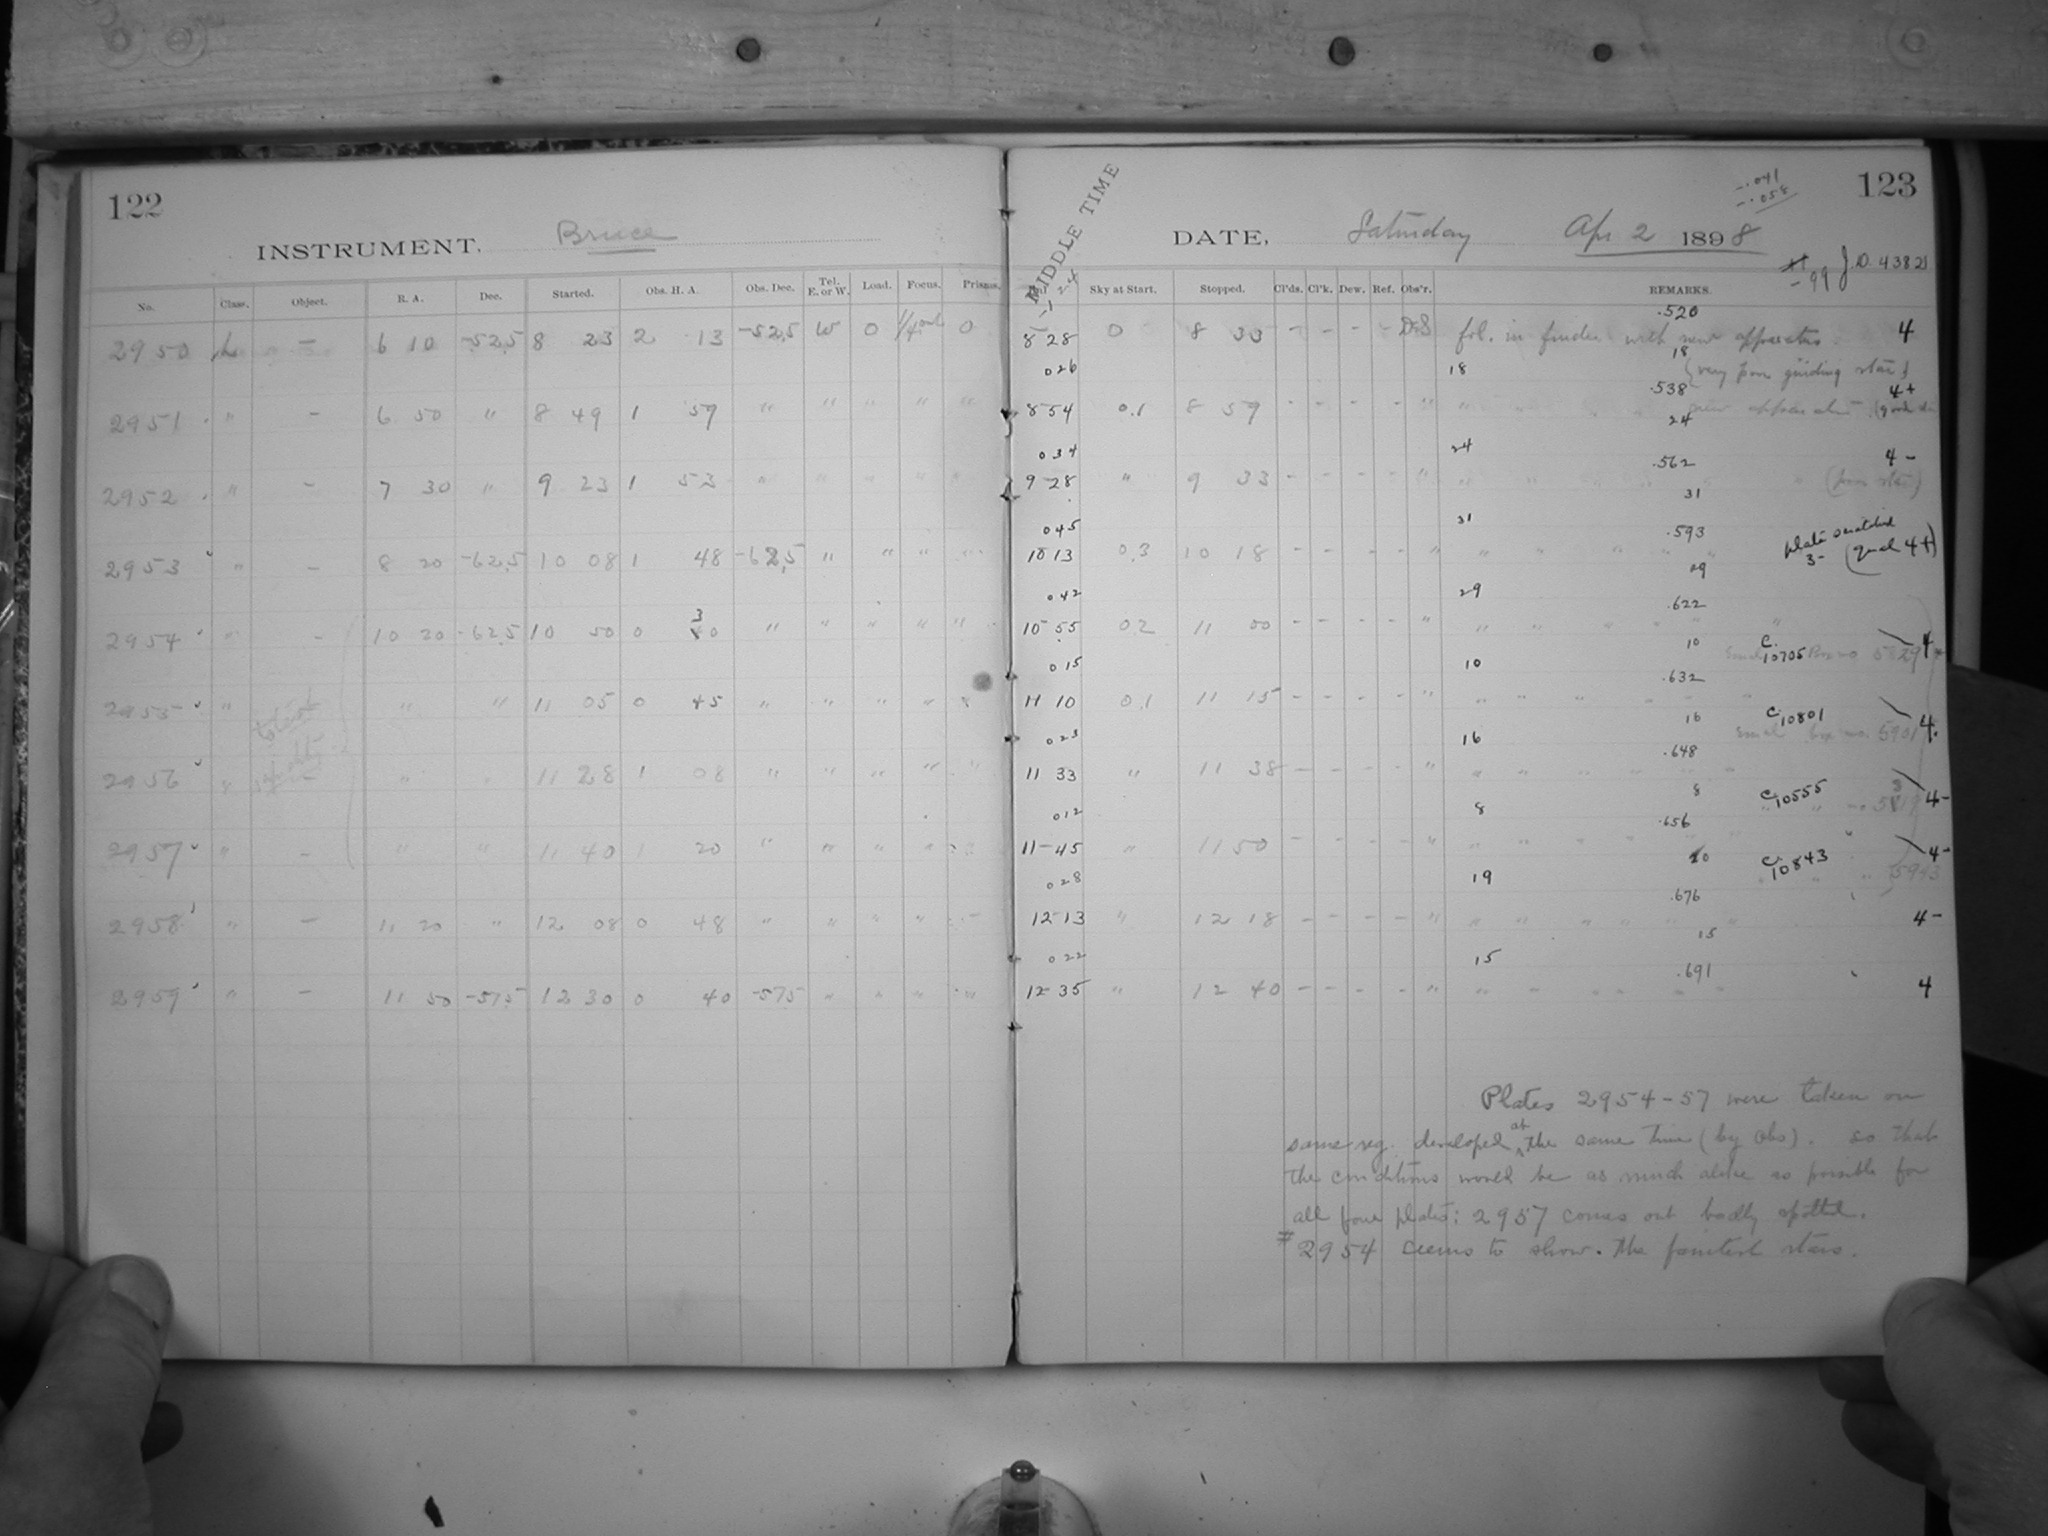 122
INSTRUMENT, Bruce
No. Class. Object. R. A. Dec. Started. Obs. H. A. Obs. Dec. Tel. E. or W. Load. Focus. Prisms.
2950 L — 6 10 -52.5 8 23 2 13 -52.5 W 0 1/4 out 0
2951 " — 6 50 " 8 49 1 59 " " " " "
2952 " — 7 30 " 9 23 1 53 " " " " "
2953 " — 8 20 -62.5 10 08 1 48 -62.5 " " " "
2954 " — 10 20 -62.5 10 50 0 30 " " " " "
2955 " " " 11 05 0 45 " " " " "
2956 " — " " 11 28 1 08 " " " " "
2957 " — " " 11 40 1 20 " " " " "
2958 " — 11 20 " 12 08 0 48 " " " " "
2959 " — 11 50 -57.5 12 30 0 40 -57.5 " " " "
MIDDLE TIME
-.041
-.058
123
DATE, Saturday Apr 2 1898
-99 J.D. 43821
Sky at Start. Stopped. Cl'ds. Cl'k. Dew. Ref. Obs'r. REMARKS.
.520
8 28 0 8 33 - - - - DeS fol. in finder with new apparatus 4
026 18 18 very poor guiding star
.538 4+
8 54 0.1 8 59 - - - - " " new apparatus (good
24
034 24
.562 4-
9 28 " 9 33 - - - - " " " " " (poor star)
31
045 31
.593 plate scratched
10 13 0.3 10 18 - - - - " " " " 3- (qual 4+)
29
042 29
.622
10 55 0.2 11 00 - - - - " " " " " "
10 C. 4
015 10 10705 Box no
.632
11 10 0.1 11 15 - - - - " " " " " "
16 C 10801 4.
023 16 box no. 5901
.648
11 33 " 11 38 - - - - " " " " " "
8 C 10555 4-
012 8
.656
11 45 " 11 50 - - - - " " " " " " 4-
20 C. 10843
028 19 5943
.676
12 13 " 12 18 - - - - " " " " " " 4-
15
022 15
.691
12 35 " 12 40 - - - - " " " " " " 4
Plates 2954-57 were taken on
same reg. developed at the same time (by obs). so that
the conditions would be as much alike as possible for
all four plates: 2957 comes out badly spotted.
# 2954 seems to show the faintest stars.